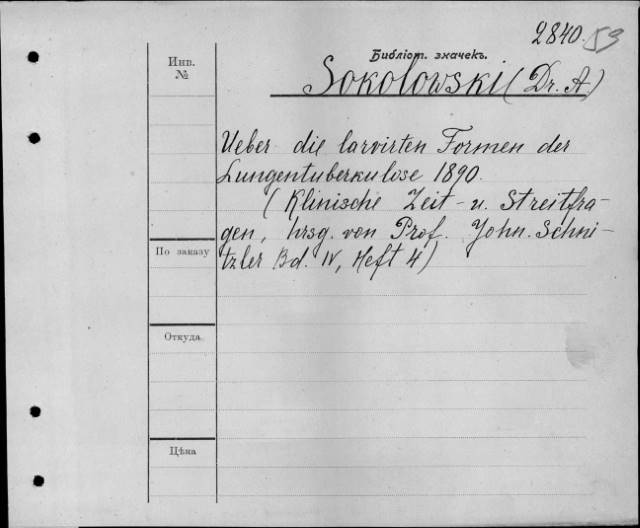 2840. 59
Библіот. значекъ.
Sokolowski (Dr. A)
Инв.
№
Ueber die larvirten Formen der
Lungentuberkulose 1890.
(Klinische Zeit- u. Streitfra-
gen, hrsg. von Prof. John. Schni-
tzler Bd. IV, Heft 4)
По заказу
Откуда.
Цѣна